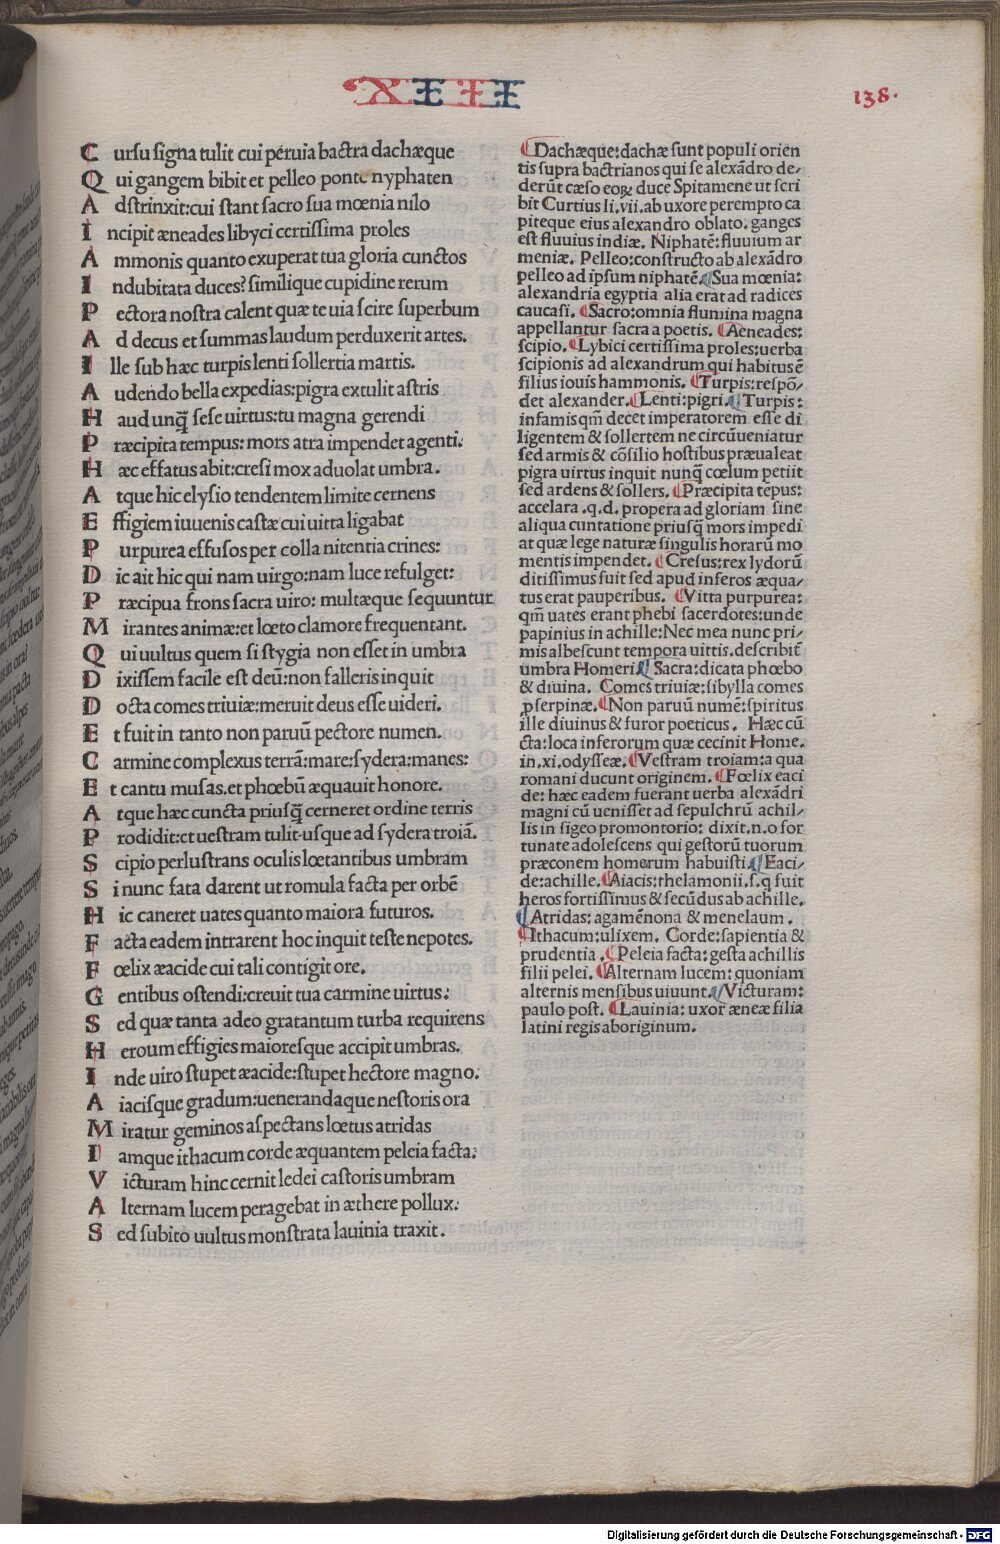 XIII
138.
C ursu signa tulit cui peruia bactra dachæque
Q ui gangem bibit et pelleo ponte nyphaten
A dstrinxit:cui stant sacro sua mœnia nilo
I ncipit æneades libyci certissima proles
A mmonis quanto exuperat tua gloria cunctos
I ndubitata duces? similique cupidine rerum
P ectora nostra calent quæ te uia scire superbum
A d decus et summas laudum perduxerit artes.
I lle sub hæc turpis lenti sollertia martis.
A udendo bella expedias:pigra extulit astris
H aud unq̄ sese uirtus:tu magna gerendi
P ræcipita tempus: mors atra impendet agenti.
H æc effatus abit:cresi mox aduolat umbra.
A tque hic elysio tendentem limite cernens
E ffigiem iuuenis castæ cui uitta ligabat
P urpurea effusos per colla nitentia crines:
D ic ait hic qui nam uirgo:nam luce refulget:
P ræcipua frons sacra uiro: multæque sequuntur
M irantes animæ:et lœto clamore frequentant.
Q ui uultus quem si stygia non esset in umbra
D ixissem facile est deū:non falleris inquit
D octa comes triuiæ:meruit deus esse uideri.
E t fuit in tanto non paruū pectore numen.
C armine complexus terrā:mare:sydera:manes:
E t cantu musas.et phœbū æquauit honore.
A tque hæc cuncta priusq̄ cerneret ordine terris
P rodidit:et uestram tulit usque ad sydera troiā.
S cipio perlustrans oculis lœtantibus umbram
S i nunc fata darent ut romula facta per orbē
H ic caneret uates quanto maiora futuros.
F acta eadem intrarent hoc inquit teste nepotes.
F œlix æacide cui tali contigit ore.
G entibus ostendi:creuit tua carmine uirtus:
S ed quæ tanta adeo gratantum turba requirens
H eroum effigies maioresque accipit umbras.
I nde uiro stupet æacide:stupet hectore magno:
A iacisque gradum:uenerandaque nestoris ora
M iratur geminos aspectans lœtus atridas
I amque ithacum corde æquantem peleia facta:
V icturam hinc cernit ledei castoris umbram
A lternam lucem peragebat in æthere pollux:
S ed subito uultus monstrata lauinia traxit.
Dachæque:dachæ sunt populi orien
tis supra bactrianos qui se alexādro de/
derūt cæso eoꝝ duce Spitamene ut scri
bit Curtius li.vii.ab uxore perempto ca
piteque eius alexandro oblato. ganges
est fluuius indiæ. Niphatē:fluuium ar
meniæ. Pelleo:constructo ab alexādro
pelleo ad ipsum niphatē. Sua mœnia:
alexandria egyptia alia erat ad radices
caucasi. Sacro:omnia flumina magna
appellantur sacra a poetis. Aeneades:
scipio. Lybici certissima proles:uerba
scipionis ad alexandrum qui habitus ē
filius iouis hammonis. Turpis:respō/
det alexander. Lenti:pigri. Turpis:
infamis qm̄ decet imperatorem esse di
ligentem & sollertem ne circūueniatur
sed armis & cōsilio hostibus præualeat
pigra uirtus inquit nunq̄ cœlum petiit
sed ardens & sollers. Præcipita tēpus:
accelara .q.d. propera ad gloriam sine
aliqua cuntatione priusq̄ mors impedi
at quæ lege naturæ singulis horarū mo
mentis impendet. Cresus:rex lydorū
ditissimus fuit sed apud inferos æqua/
tus erat pauperibus. Vitta purpurea:
qm̄ uates erant phebi sacerdotes:unde
papinius in achille:Nec mea nunc pri/
mis albescunt tempora uittis.describit̄
umbra Homeri. Sacra:dicata phœbo
& diuina. Comes triuiæ:sibylla comes
ꝓserpinæ. Non paruū numē:spiritus
ille diuinus & furor poeticus. Hæc cū
cta:loca inferorum quæ cecinit Home.
in.xi.odysseæ. Vestram troiam:a qua
romani ducunt originem. Fœlix eaci
de: hæc eadem fuerant uerba alexādri
magni cū uenisset ad sepulchrū achil/
lis in sigeo promontorio: dixit.n.o for
tunate adolescens qui gestorū tuorum
præconem homerum habuisti. Eaci/
de:achille. Aiacis:thelamonii.f.q fuit
heros fortissimus & secūdus ab achille.
Atridas: agamēnona & menelaum.
Ithacum:ulixem. Corde:sapientia &
prudentia. Peleia facta:gesta achillis
filii pelei. Alternam lucem: quoniam
alternis mensibus uiuunt. Victuram:
paulo post. Lauinia: uxor æneæ filia
latini regis aboriginum.
Digitalisierung gefördert durch die Deutsche Forschungsgemeinschaft - DFG